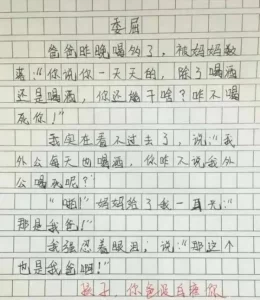 委屈
爸爸昨晚喝多了，被妈妈数
落："你说你一天天的，除了喝酒
还是喝酒，你还能干啥？咋不喝
死你！"
我实在看不过去了，说："我
外公每天也喝酒，你咋不说我外
公喝死呢？"
"啪！"妈妈给了我一耳光："
那是我爸！"
我强忍着眼泪，说："那这个
也是我爸啊！"
孩子，你爸没白疼你